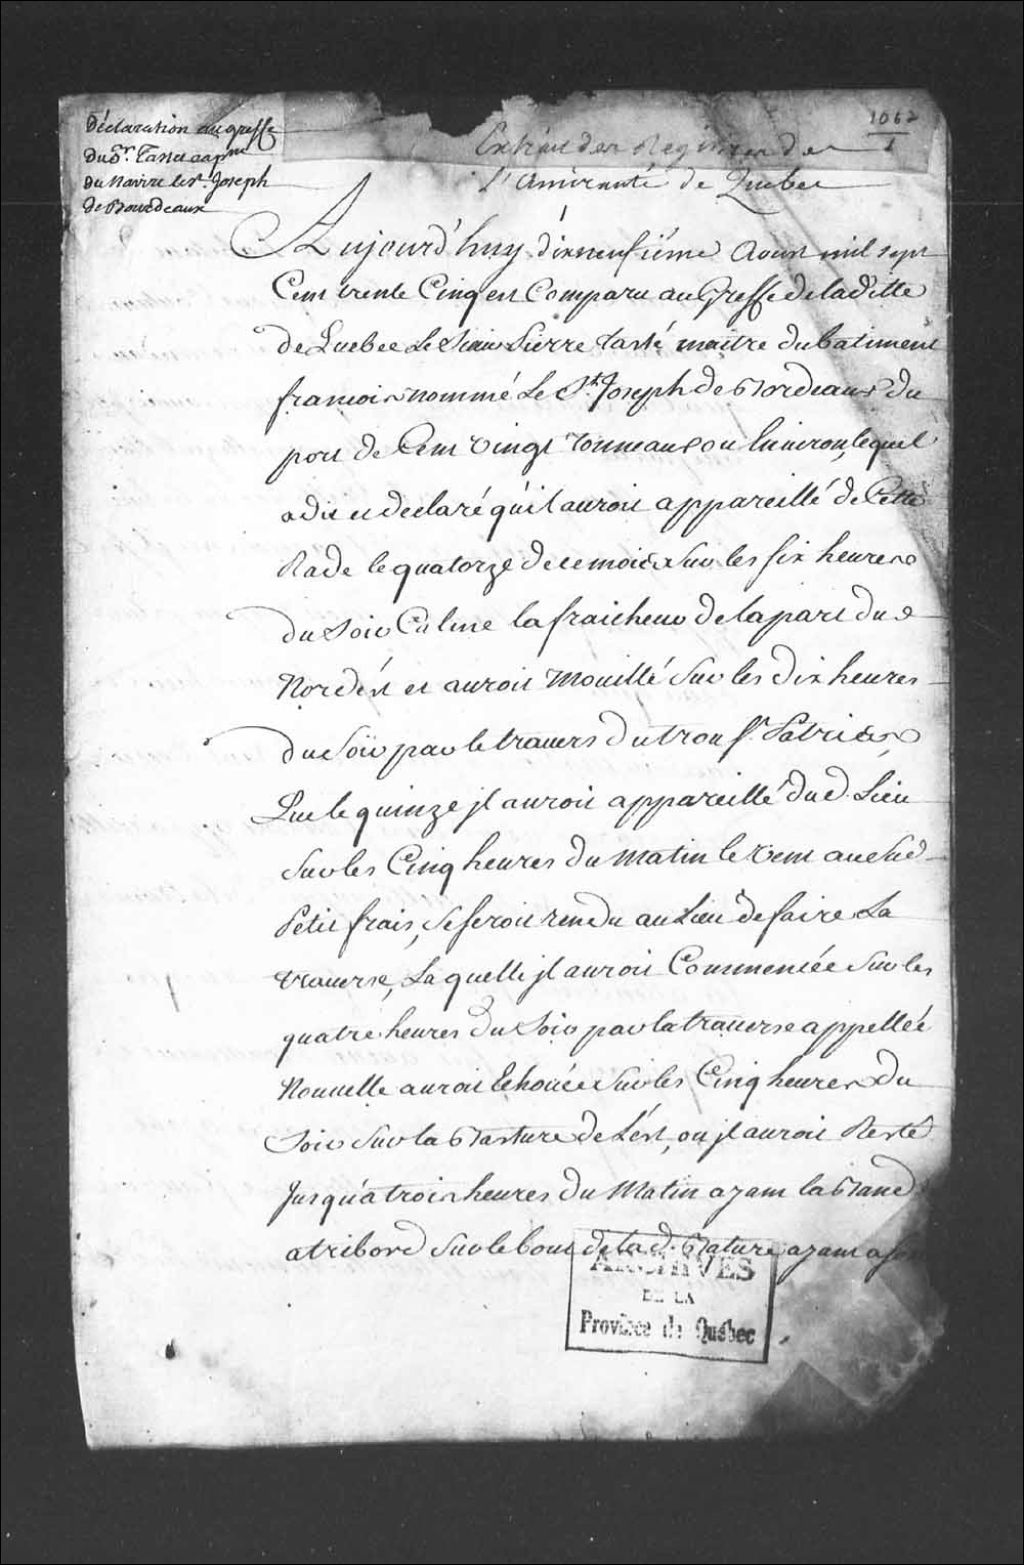 Déclaration au greffe
du Sr. Tasté capne
du Navire le St. Joseph
de Bourdeaux
1062
1
Extrait des Registres de
l'Amirauté de Quebec
Aujourd'huy dixneufiéme Aoust mil sept
Cent trente Cinq est Comparu au Greffe de laditte
de Quebec Le Sieur Pierre tasté maitre du batiment
francois nommé Le St. Joseph de Bordeaux du
port de Cent vingt tonneaux ou Environ, lequel
a dit et declaré qu'il auroit appareillé de Cette
Rade le quatorze de ce mois Sur les six heures
du Soir Calme la fraicheur de la part du
Nordést et auroit Mouillé Sur les dix heures
du Soir par le travers du trou St. Patrice
Que le quinze jl auroit appareillé dud. Lieu
Sur les Cinq heures du Matin le vent au Sud
Petit frais, Se seroit rendu au Lieu de faire La
traverse, Laquelle jl auroit Commencée Sur les
quatre heures du Soir par la traverse appellée
Nouvelle auroit Echouée Sur les Cinq heures du
Soir Sur la Basture de L'ést, ou jl auroit Resté
Jusqu'a trois heures du Matin ayant la Bande
a tribord Sur le bout de lad. Bature ayant a son
ARCHIVES
DE LA
Province de Québec